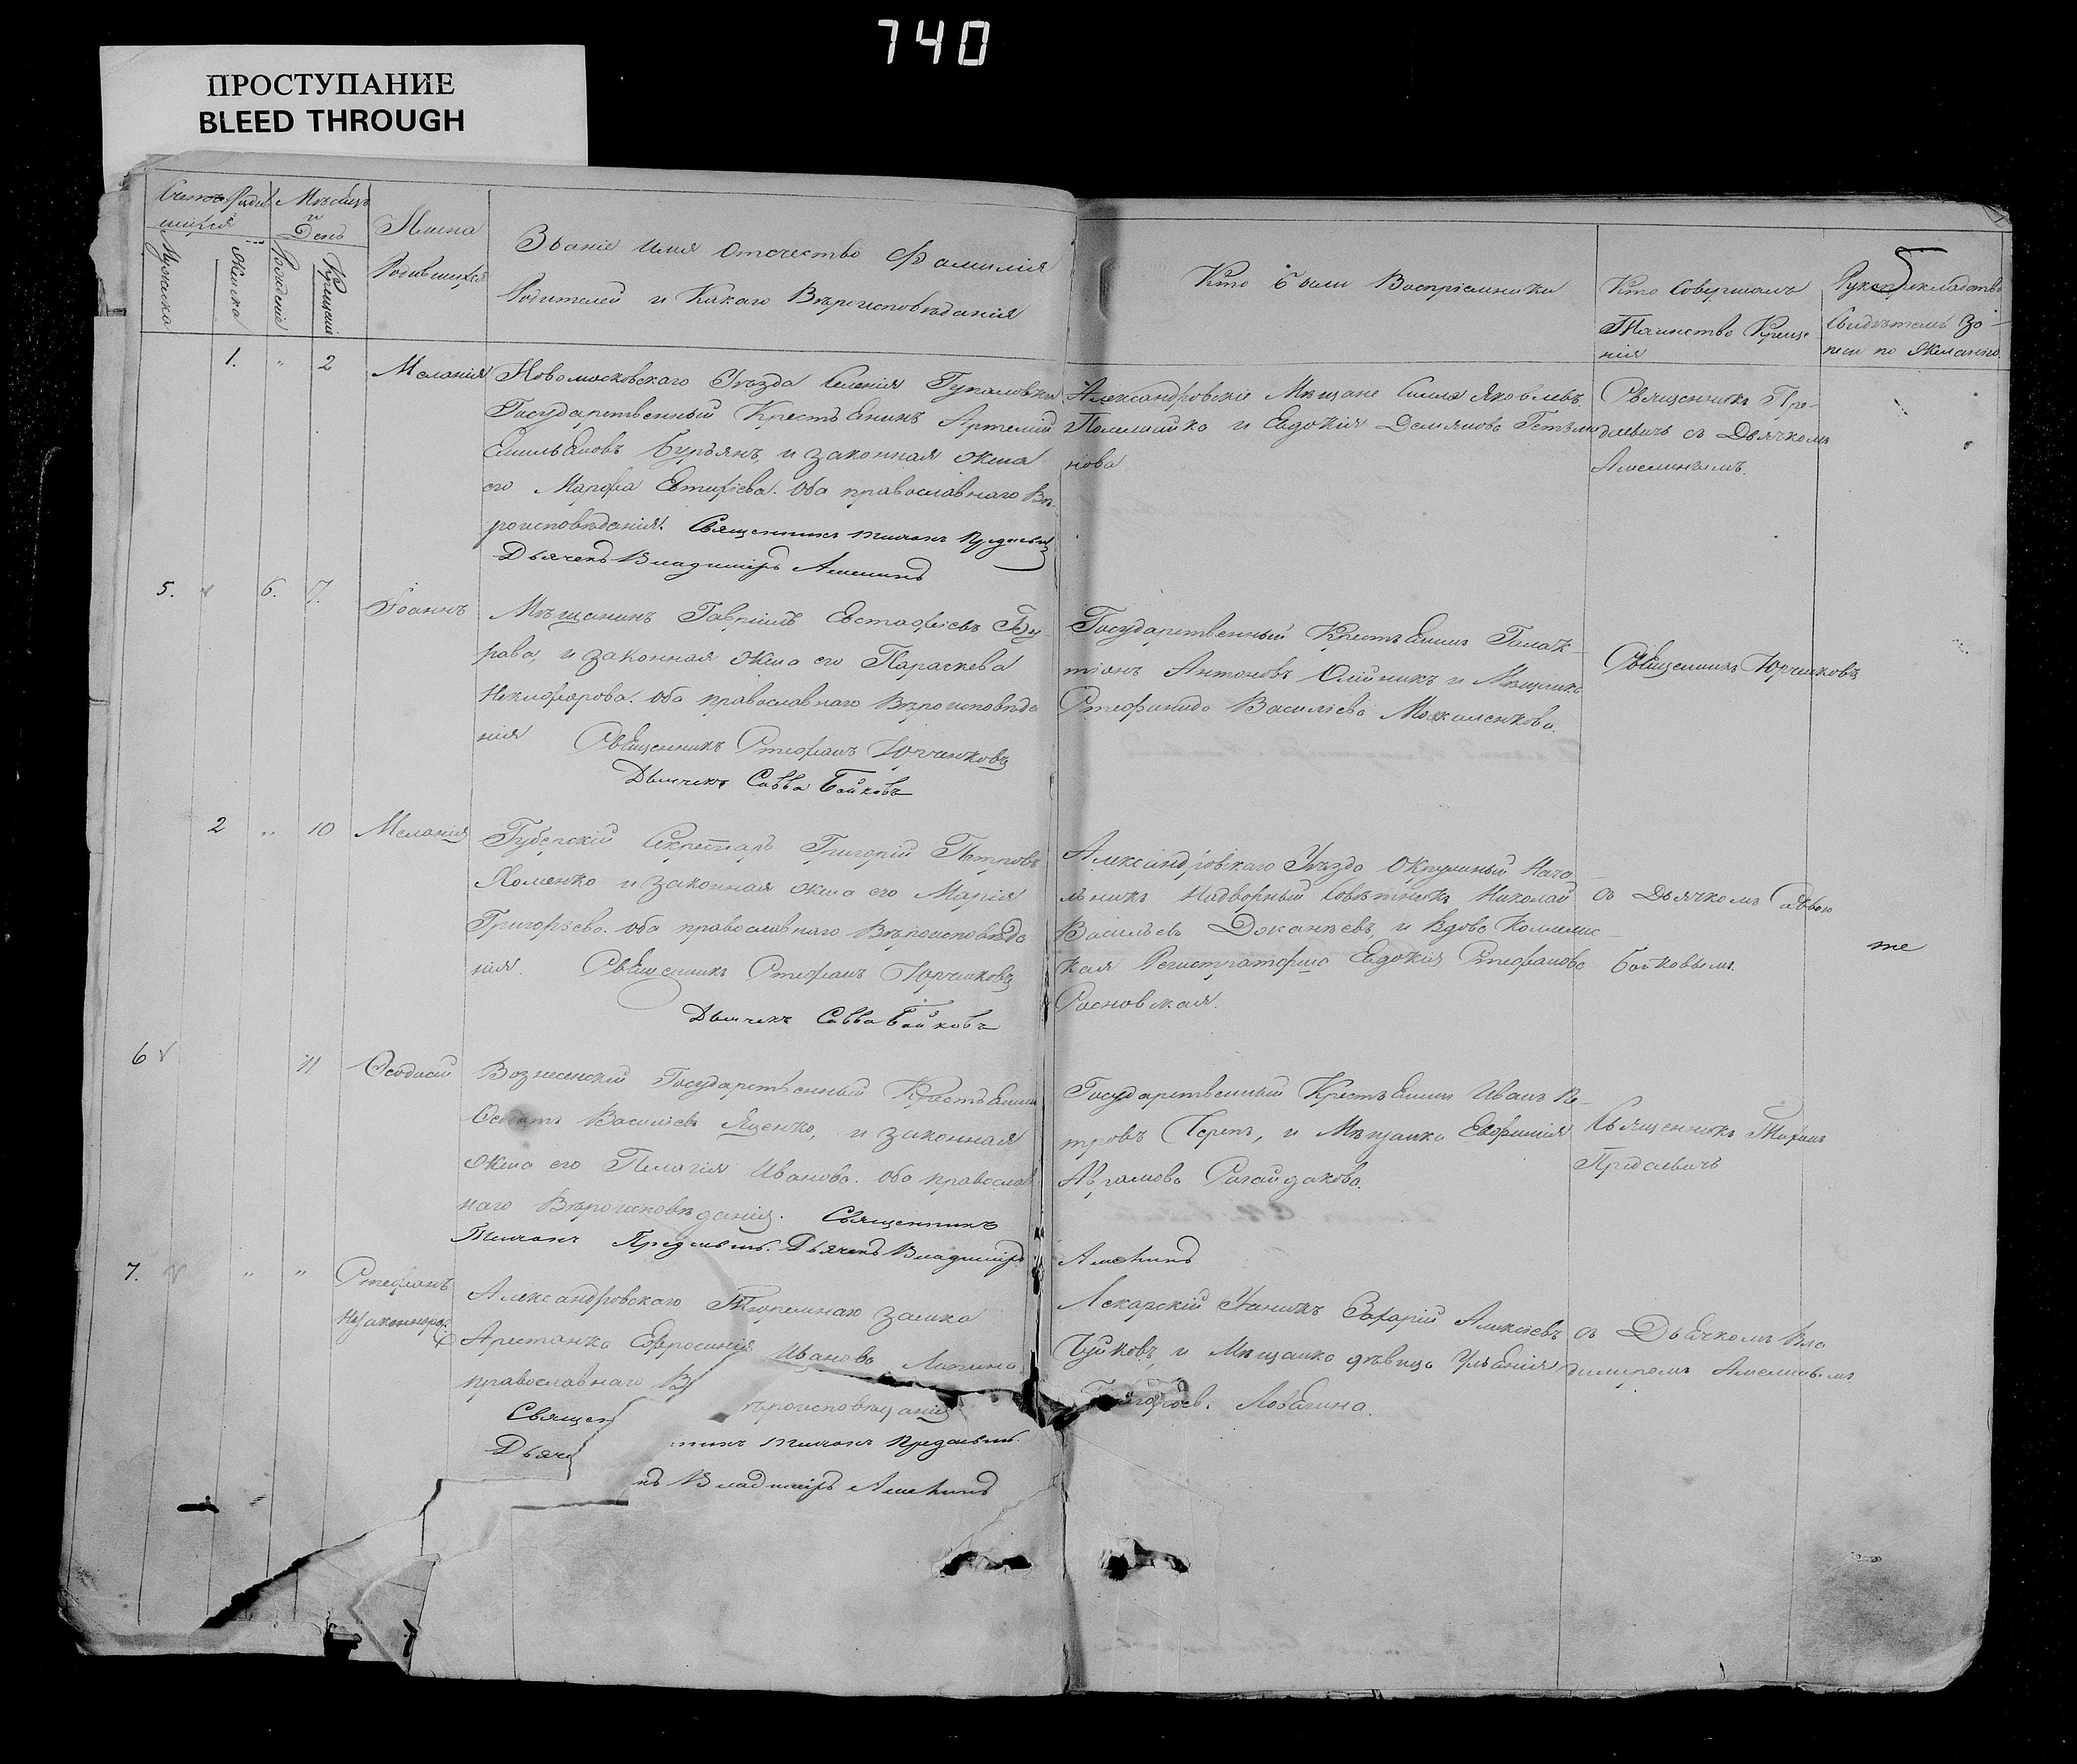 740
ПРОСТУПАНИЕ
BLEED THROUGH
5
Счетъ Роди
Мѣсяцъ
и
День
Имена
Родившихся
Мужеска
Женска
Рожденіе
Крещенія
Званіе Имя Отчество Фамилія
Родителей и Какаго Вѣроисповѣданія
Кто были Воспріемники
Кто Совершалъ
Таинство Креще
нія
Рукоприкладство
Свидѣтелей За-
писи по Желанію.
1. " 2
Меланія
Новомосковскаго Уѣзда Селенія
Государственный Крестьянинъ Артемій
Емильяновъ Бурьянъ, и законная жена
его Марфа Евтифіева. оба православнаго Вѣ-
роисповѣданія. Священникъ Тихонъ Предаевич
Дьячекъ Владиміръ Амелинъ
Александровскіе Мѣщане Яковлевъ
и Евдокія Демянова
нова
Священникъ Пре-
даевичъ съ Дьячкомъ
Амелинымъ.
5. 6. 7.
Іоаннъ
Мѣщанинъ Гавріилъ Евстафіевъ Бу
рава, и законная жена его Параскева
Никифорова. оба православнаго Вѣроисповѣда
нія Священникъ Стефанъ Юрченковъ
Дьячекъ Савва Бойковъ
Государственный Крестьянинъ
Антоновъ Олійникъ и Мѣщанка
Стефанида Василіева Москаленкова.
Священникъ Юрченковъ
2 " 10
Меланія
Губерскій Секретарь Григорій Петровъ
Хоменко и законная жена его Марія
Григоріева. оба православнаго Вѣроисповѣда
нія. Священникъ Стефанъ Юрченковъ
Дьячекъ Савва Бойковъ
Александровскаго Уѣзда Окружный Нача
льникъ Надворный Совѣтникъ Николай
Васильевъ и вдова Коллежс
кая Регистраторша Евдокія Стефанова
Сосновская.
съ Дьячкомъ Саввою
Бойковымъ.
те
6 11
Ѳеодосій
Вознесенскій Государственный Крестьянинъ
Василіевъ Яценко, и законная
жена его Пелагія Иванова. оба православ
наго Вѣроисповѣданія. Священникъ
Тихонъ Предаевичъ. Дьячекъ Владиміръ
Амелинъ
Государственный Крестьянинъ Иванъ Пе-
тровъ Черепъ, и Мѣщанка Евфимія
Аврамова Сагайдакова.
Священникъ Тихонъ
Предаевичъ
7. " "
Стефанъ
Незаконнорож.
Александровскаго Тюремнаго замка
Арестанка Ефросинія Иванова Липина
православнаго Вѣроисповѣданія
Священникъ Тихонъ Предаевичъ.
Дьячекъ Владиміръ Амелинъ
Лекарскій Ученикъ Захарій Алексіевъ
Чуйковъ, и Мѣщанка дѣвица Ульянія
Григоріев. Ловягина.
съ Дьячкомъ Вла
димиромъ Амелинымъ